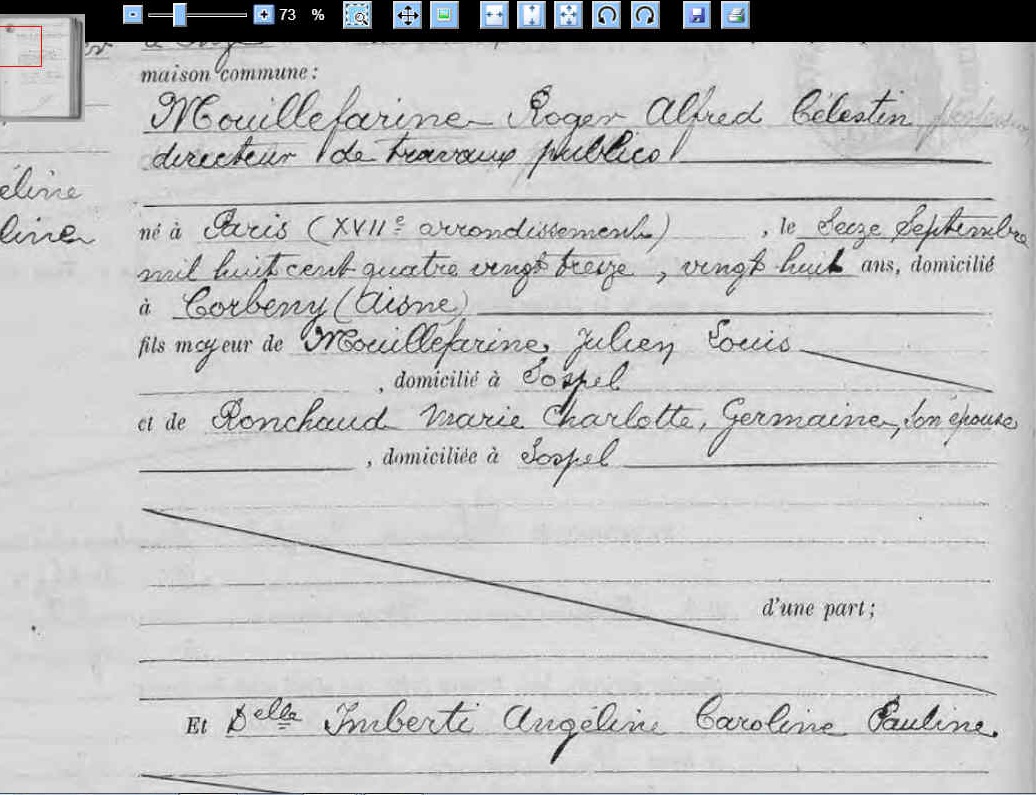 73 %
maison commune :
Mouillefarine Roger Alfred Célestin
directeur de travaux publics
éline
line
né à Paris (XVIIe arrondissement) , le Seize Septembre
mil huit cent quatre vingt treize, vingt huit ans, domicilié
à Corbeny (Aisne)
fils majeur de Mouillefarine, Julien Louis
, domicilié à Sospel
et de Ronchaud Marie Charlotte, Germaine, son épouse
, domiciliée à Sospel
d'une part ;
Et Delle Imberti Angéline Caroline Pauline